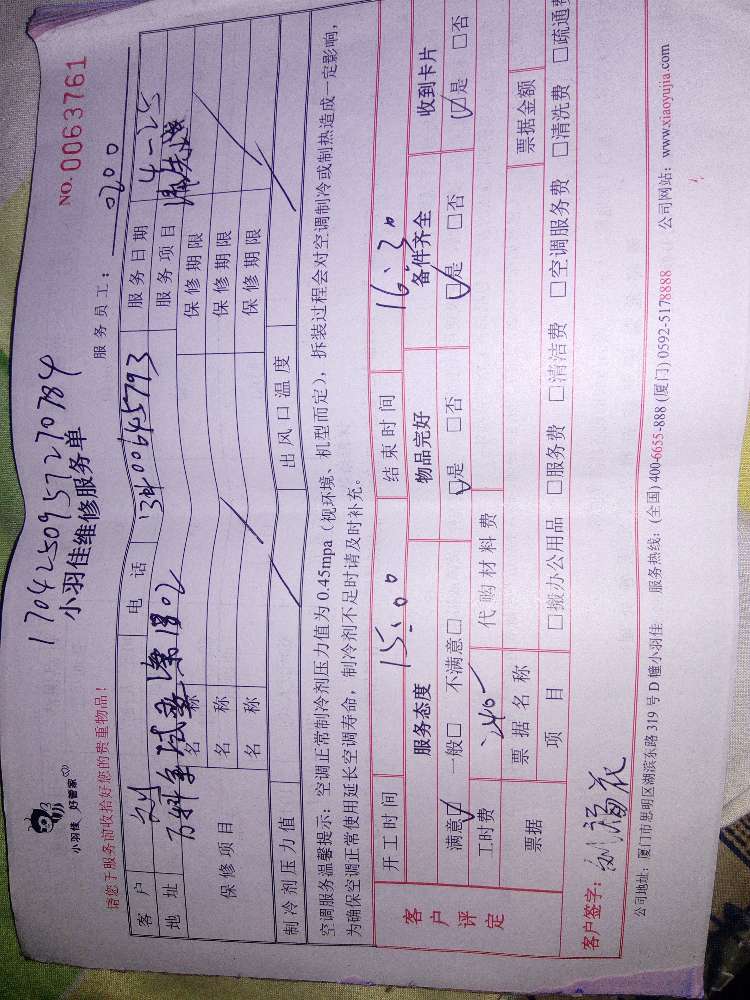 NO. 0063761
1704250957270784
小羽佳 好管家
小羽佳维修服务单
服务员工： 0200
请您于服务前收拾好您的贵重物品！
客户 刘 电话 13400645793 服务日期 4-25
地址 万科 1802 服务项目
保修项目 名称 保修期限
名称 保修期限
名称 保修期限
制冷剂压力值 出风口温度
空调服务温馨提示：空调正常制冷剂压力值为0.45mpa（视环境、机型而定），拆装过程会对空调制冷或制热造成一定影响，
为确保空调正常使用延长空调寿命，制冷剂不足时请及时补充。
客户评定
开工时间 15:00 结束时间 16:30
服务态度 物品完好 备件齐全 收到卡片
满意□ 一般□ 不满意□ □是 □否 □是 □否 □是 □否
工时费 240 代购材料费
票据 票据名称 票据金额
项目 □搬办公用品 □服务费 □清洁费 □空调服务费 □清洗费 □疏通费
客户签字：刘福花
公司地址：厦门市思明区湖滨东路319号D幢小羽佳 服务热线：(全国)400-6655-888 (厦门)0592-5178888 公司网站：www.xiaoyujia.com